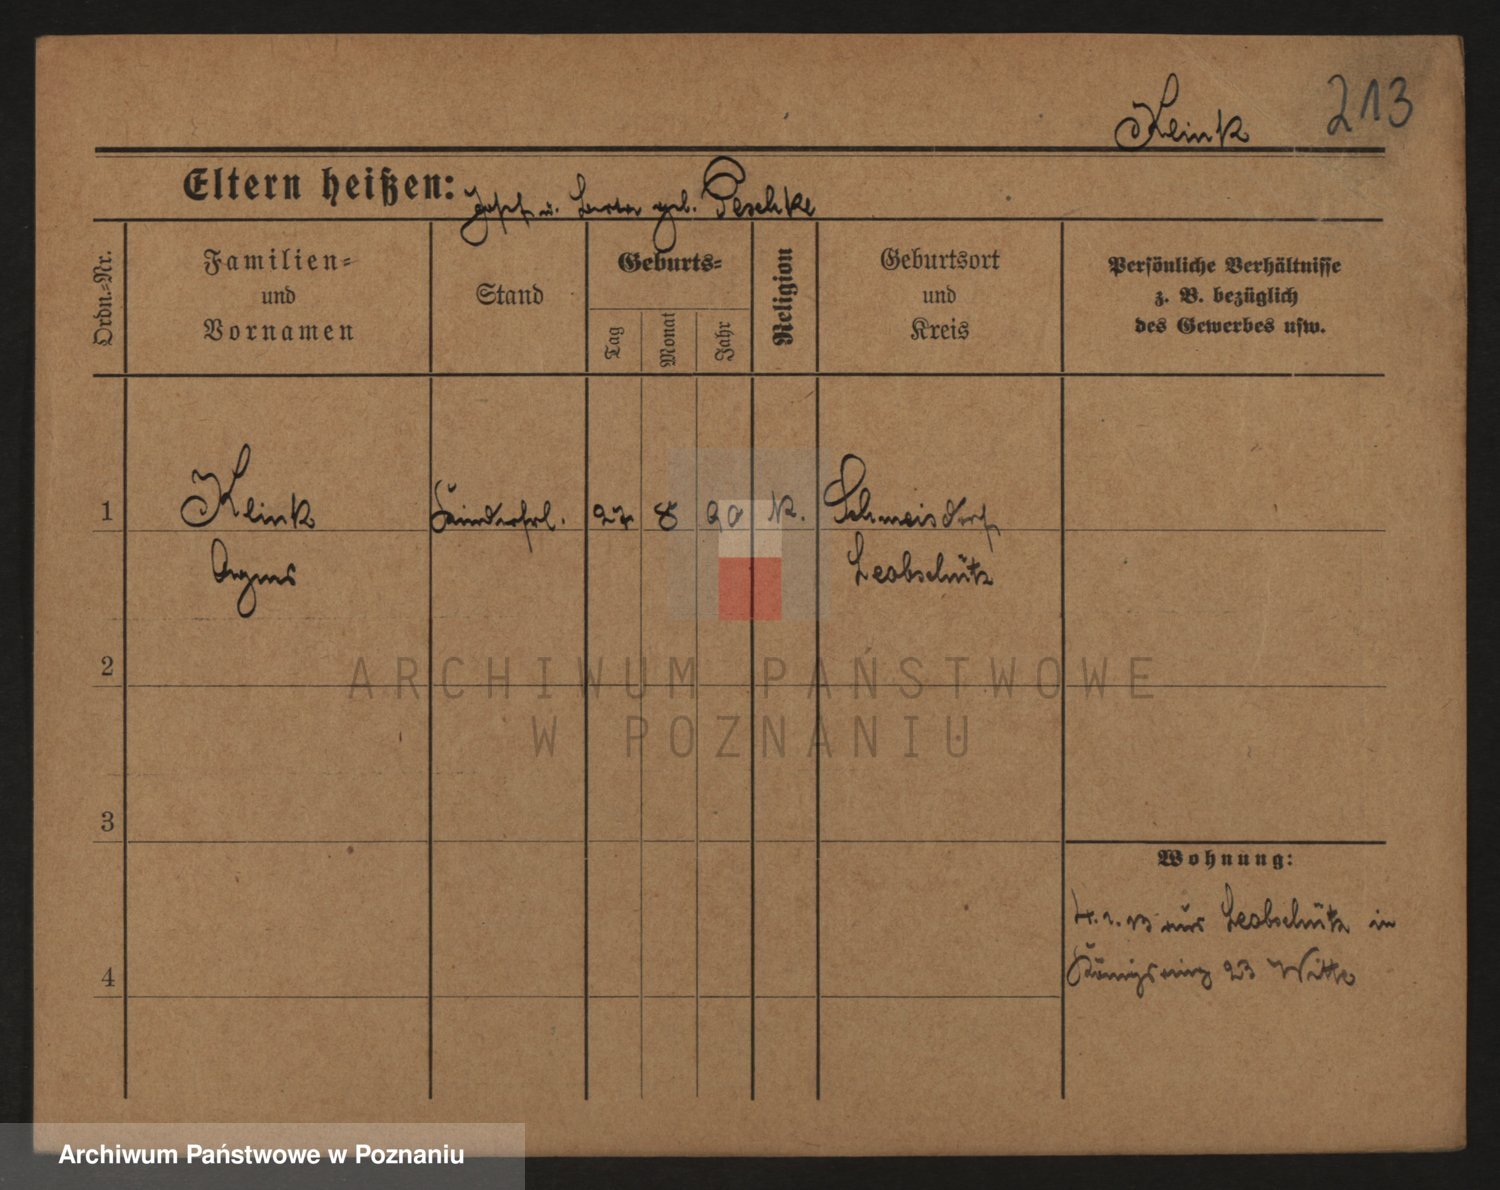 Klink 213
Eltern heißen: Josef u. geb. Peschke
Ordn.-Nr.
Familien-
und
Vornamen
Stand
Geburts-
Tag
Monat
Jahr
Religion
Geburtsort
und
Kreis
Persönliche Verhältnisse
z. B. bezüglich
des Gewerbes usw.
1 Klink Kinderfrl. 27 8 90 K. Schmeisdorf
Agnes Leobschütz
2
3
4
Wohnung:
4. 1. 13 aus Leobschütz in
Königsring 23 Witte
ARCHIWUM PAŃSTWOWE
W POZNANIU
Archiwum Państwowe w Poznaniu